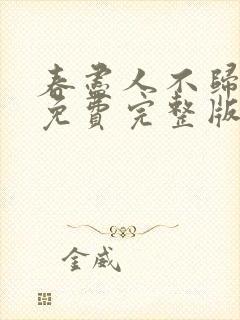 春盡人不歸
免費完整版
金威